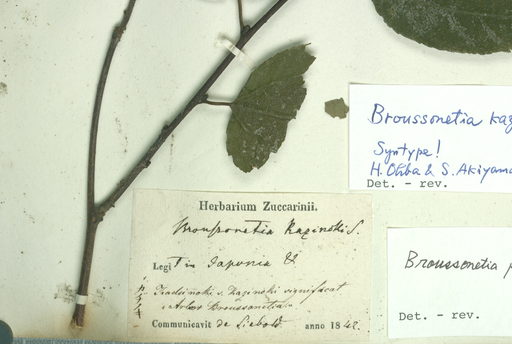 Broussonetia kaz
Syntype!
H. Ohba & S. Akiyama
Det. - rev.
Herbarium Zuccarinii.
Broussonetia Kazinoki S.
Legi in Japonia
Kazinoki significat
Arbor Broussonetia
Communicavit de Siebold anno 1842.
Broussonetia
Det. - rev.